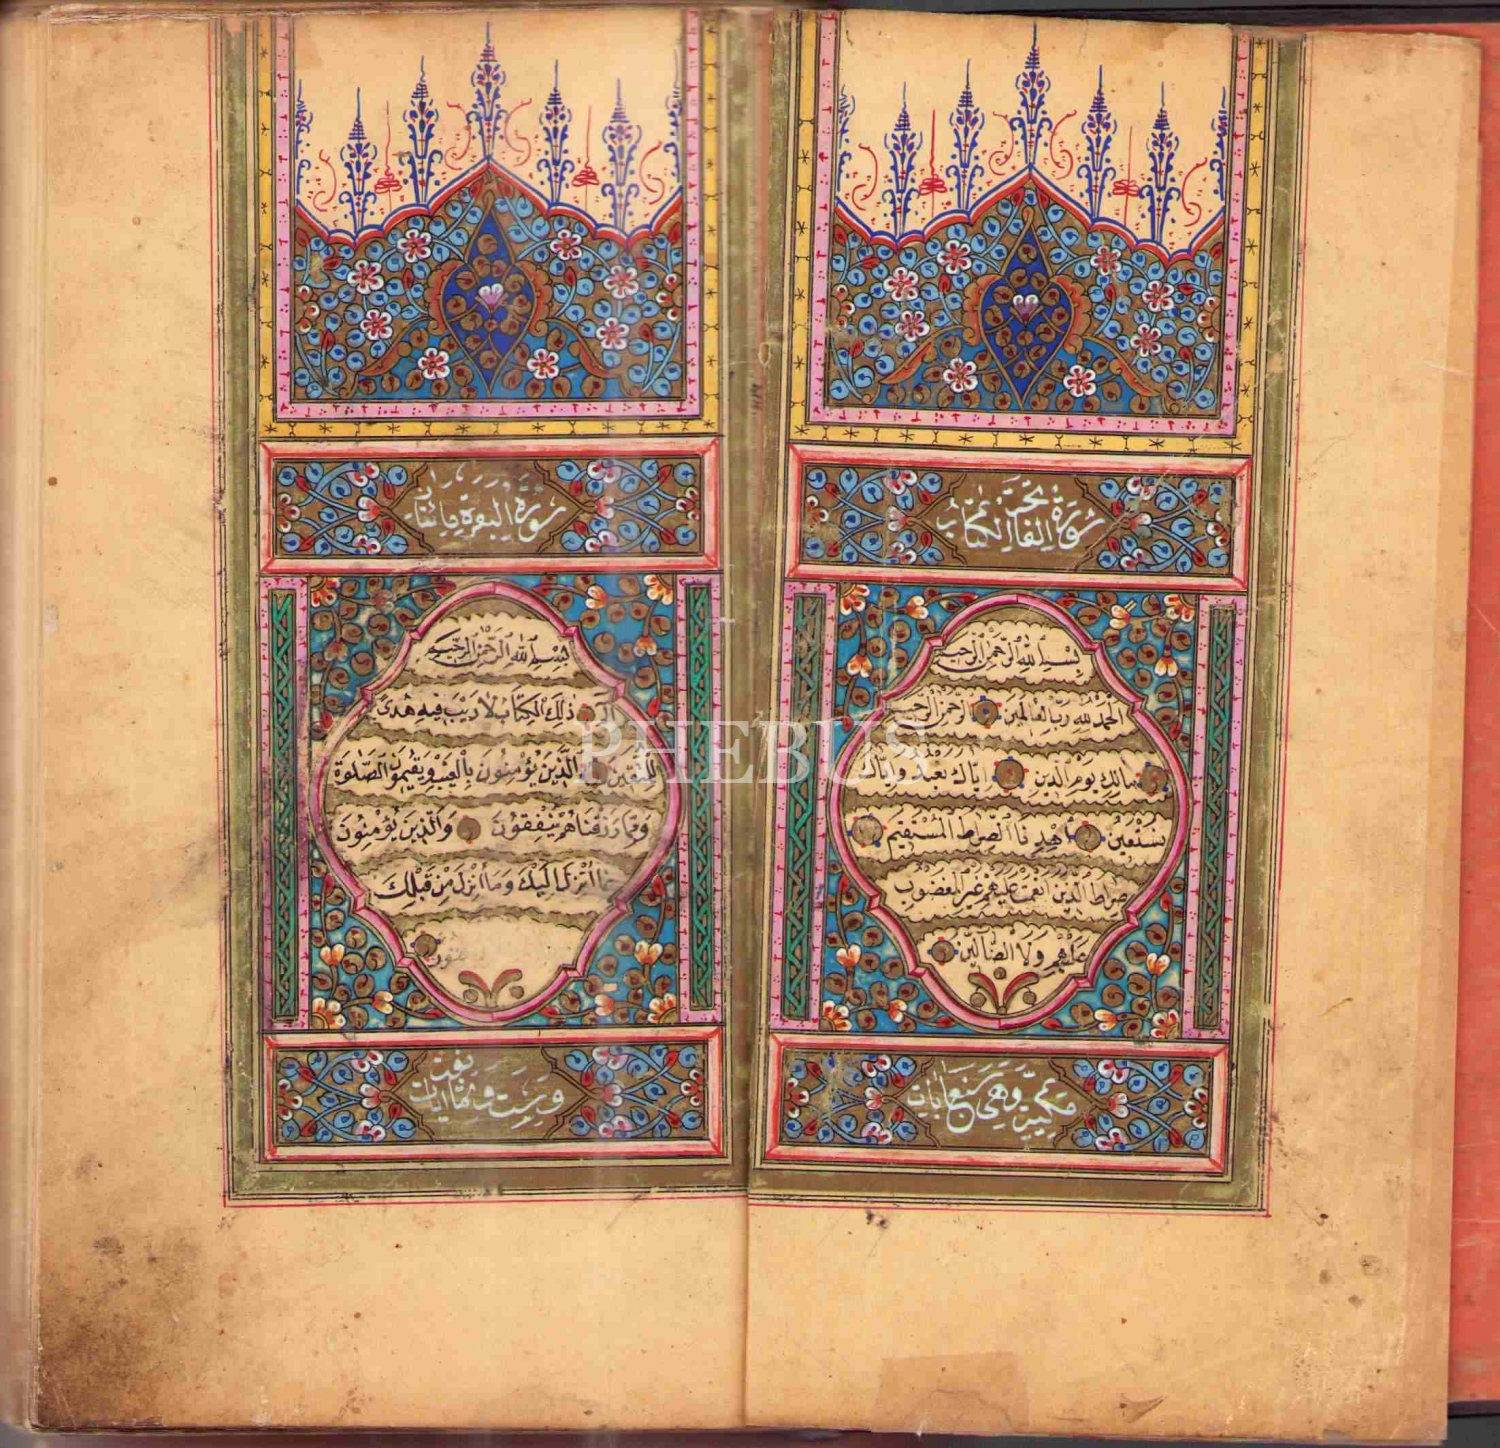 سورة فاتحة الكتاب
بسم الله الرحمن الرحيم
الحمد لله رب العالمين الرحمن الرحيم
مالك يوم الدين اياك نعبد واياك
نستعين اهدنا الصراط المستقيم
صراط الذين انعمت عليهم غير المغضوب
عليهم ولا الضالين
مكية وهي سبع ايات
سورة البقرة مائتان
بسم الله الرحمن الرحيم
الم ذلك الكتاب لا ريب فيه هدى
للمتقين الذين يؤمنون بالغيب ويقيمون الصلوة
ومما رزقناهم ينفقون والذين يؤمنون
بما انزل اليك وما انزل من قبلك
وست وثمانون ايات
PHEBUS